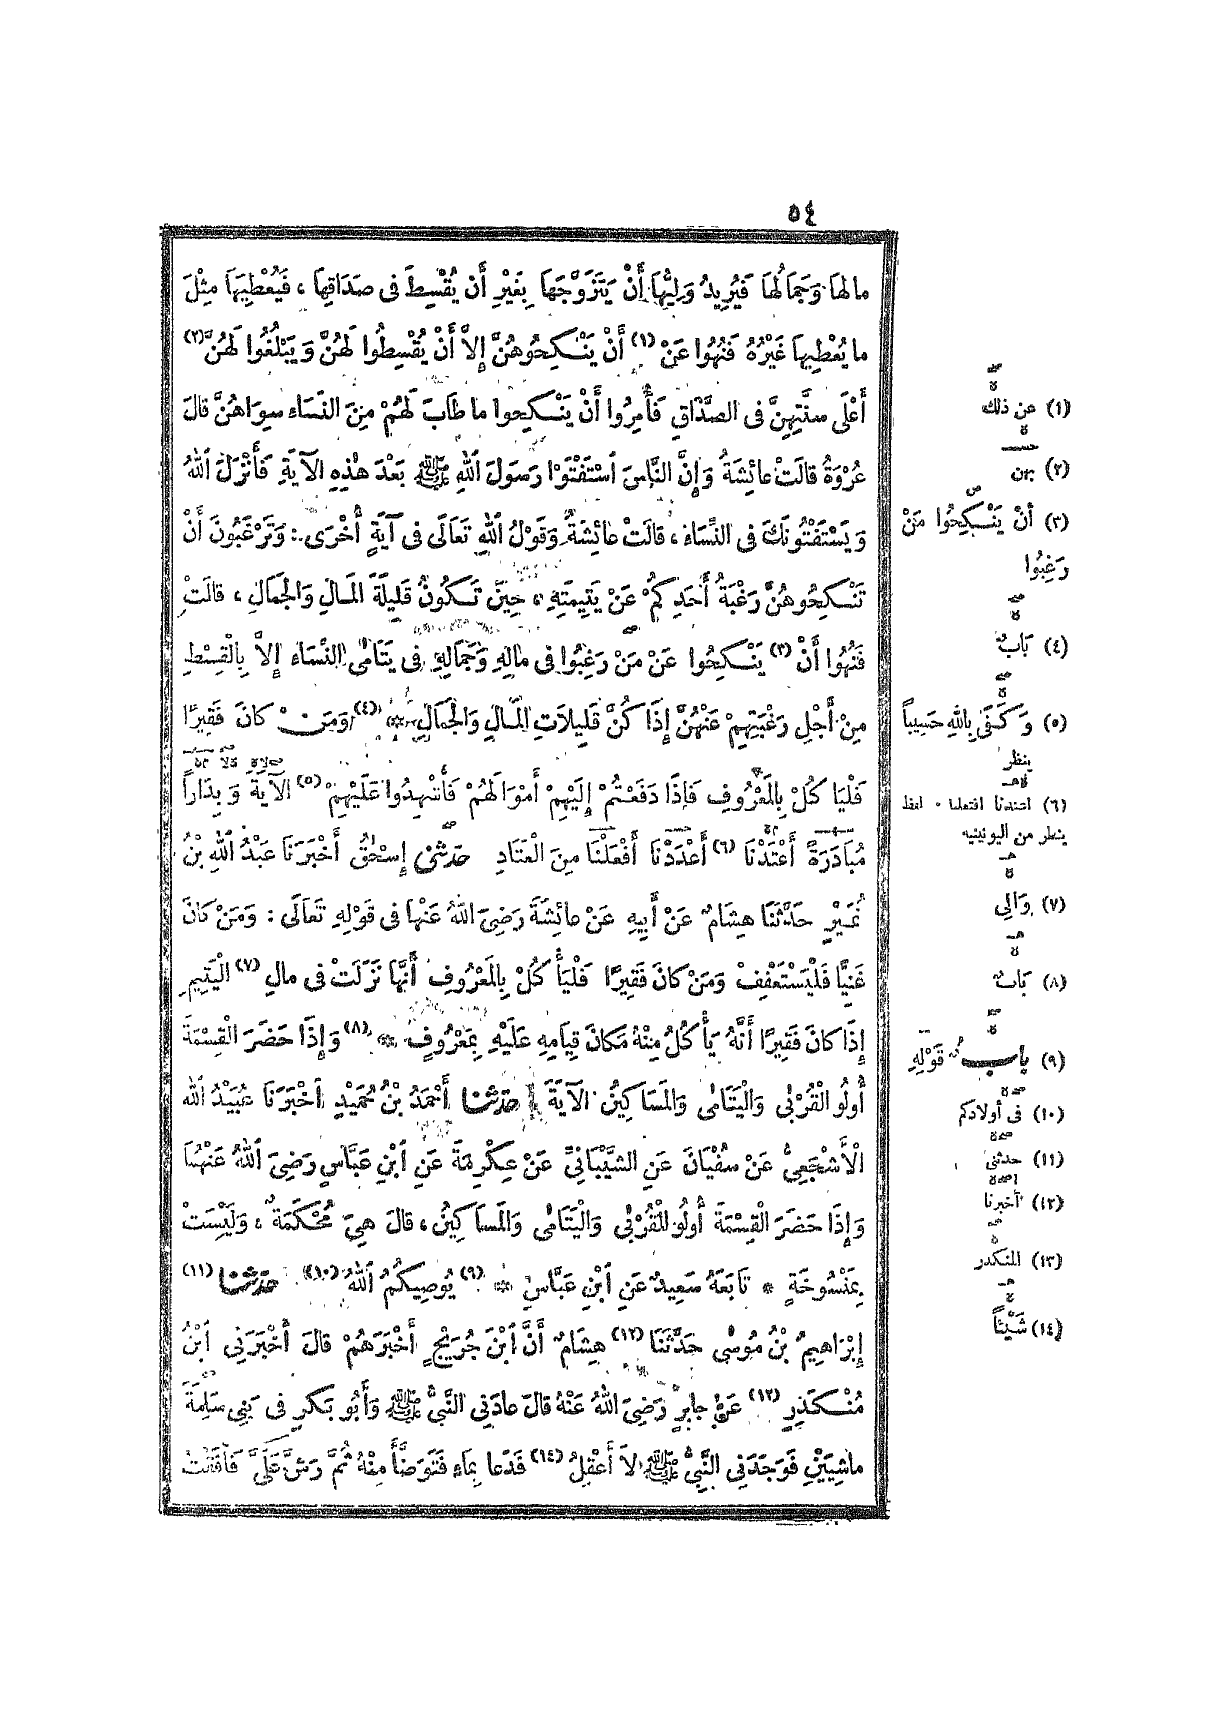 ٥٤
مَالُهَا وَجَمَالُهَا فَيُرِيدُ وَلِيُّهَا أَنْ يَتَزَوَّجَهَا بِغَيْرِ أَنْ يُقْسِطَ فِى صَدَاقِهَا ، فَيُعْطِيَهَا مِثْلَ
ما يُعْطِيهَا غَيْرُهُ فَنُهُوا عَنْ (١) أَنْ يَنْكِحُوهُنَّ إِلاَّ أَنْ يُقْسِطُوا لَهُنَّ وَيَبْلُغُوا لَهُنَّ (٢)
أَعْلَى سُنَّتِهِنَّ فِى الصَّدَاقِ فَأُمِرُوا أَنْ يَنْكِحُوا ما طَابَ لَهُمْ مِنَ النِّسَاءِ سِوَاهُنَّ قالَ
عُرْوَةُ قالَتْ عائِشَةُ وَإِنَّ النَّاسَ اسْتَفْتَوْا رَسُولَ اللهِ ﷺ بَعْدَ هٰذِهِ الآيَةِ فَأَنْزَلَ اللهُ
وَيَسْتَفْتُونَكَ فِى النِّسَاءِ ، قالَتْ عائِشَةُ وَقَوْلُ اللهِ تَعَالَى فِى آيَةٍ أُخْرَى : وَتَرْغَبُونَ أَنْ
تَنْكِحُوهُنَّ رَغْبَةُ أَحَدِكُمْ عَنْ يَتِيمَتِهِ ، حِينَ تَكُونُ قَلِيلَةَ المَالِ وَالجَمَالِ ، قالَتْ
فَنُهُوا أَنْ (٣) يَنْكِحُوا عَنْ مَنْ رَغِبُوا فِى مالِهِ وَجَمَالِهِ فِى يَتَامَى النِّسَاءِ إِلاَّ بِالْقِسْطِ
مِنْ أَجْلِ رَغْبَتِهِمْ عَنْهُنَّ إِذَا كُنَّ قَلِيلاَتِ المَالِ وَالجَمَالِ * (٤) وَمَنْ كانَ فَقِيرًا
فَلْيَأْكُلْ بِالمَعْرُوفِ فَإِذَا دَفَعْتُمْ إِلَيْهِمْ أَمْوَالَهُمْ فَأَشْهِدُوا عَلَيْهِمْ (٥) الآيَةَ وَبِدَارًا
مُبَادَرَةً أَعْتَدْنَا (٦) أَعْدَدْنَا أَفْعَلْنَا مِنَ الْعَتَادِ حَدَّثَنِى إِسْحٰقُ أَخْبَرَنَا عَبْدُ اللهِ بْنُ
نُمَيْرٍ حَدَّثَنَا هِشَامٌ عَنْ أَبِيهِ عَنْ عائِشَةَ رَضِىَ اللهُ عَنْهَا فِى قَوْلِهِ تَعَالَى : وَمَنْ كانَ
غَنِيًّا فَلْيَسْتَعْفِفْ وَمَنْ كانَ فَقِيرًا فَلْيَأْكُلْ بِالمَعْرُوفِ أَنَّهَا نَزَلَتْ فِى مالِ (٧) الْيَتِيمِ
إِذَا كانَ فَقِيرًا أَنَّهُ يَأْكُلُ مِنْهُ مَكانَ قِيَامِهِ عَلَيْهِ بِمَعْرُوفٍ * (٨) وَإِذَا حَضَرَ الْقِسْمَةَ
أُولُو الْقُرْبَى وَالْيَتَامَى وَالمَسَاكِينُ الآيَةَ حَدَّثَنَا أَحْمَدُ بْنُ حُمَيْدٍ أَخْبَرَنَا عُبَيْدُ اللهِ
الْأَشْجَعِىُّ عَنْ سُفْيَانَ عَنِ الشَّيْبَانِىِّ عَنْ عِكْرِمَةَ عَنِ ابْنِ عَبَّاسٍ رَضِىَ اللهُ عَنْهُمَا
وَإِذَا حَضَرَ الْقِسْمَةَ أُولُو الْقُرْبَى وَالْيَتَامَى وَالمَسَاكِينُ ، قالَ هِىَ مُحْكَمَةٌ ، وَلَيْسَتْ
بِمَنْسُوخَةٍ * تَابَعَهُ سَعِيدٌ عَنِ ابْنِ عَبَّاسٍ * (٩) يُوصِيكُمُ اللهُ (١٠) حَدَّثَنَا (١١)
إِبْرَاهِيمُ بْنُ مُوسٰى حَدَّثَنَا (١٢) هِشَامٌ أَنَّ ابْنَ جُرَيْجٍ أَخْبَرَهُمْ قالَ أَخْبَرَنِى ابْنُ
مُنْكَدِرٍ (١٣) عَنْ جابِرٍ رَضِىَ اللهُ عَنْهُ قالَ عادَنِى النَّبِىُّ ﷺ وَأَبُو بَكرٍ فِى بَنِى سَلِمَةَ
ماشِيَيْنِ فَوَجَدَنِى النَّبِىُّ ﷺ لاَ أَعْقِلُ (١٤) فَدَعا بِمَاءٍ فَتَوَضَّأَ مِنْهُ ثُمَّ رَشَّ عَلَىَّ فَأَفَقْتُ
(١) عن ذلك
(٢) بهن
(٣) أَنْ يَنْكِحُوا مَنْ
رَغِبُوا
(٤) بَابٌ
(٥) وَكَفَى بِاللهِ حَسِيبًا
ينظر
(٦) اعتدنا افتعلنا . لفظ
ينظر من اليونينية
(٧) وَالِى
(٨) بَابٌ
(٩) بابُ قَوْلِهِ
(١٠) فى أولادكم
(١١) حدثنى
(١٢) أخبرنا
(١٣) المنكدر
(١٤) شَيْئًا